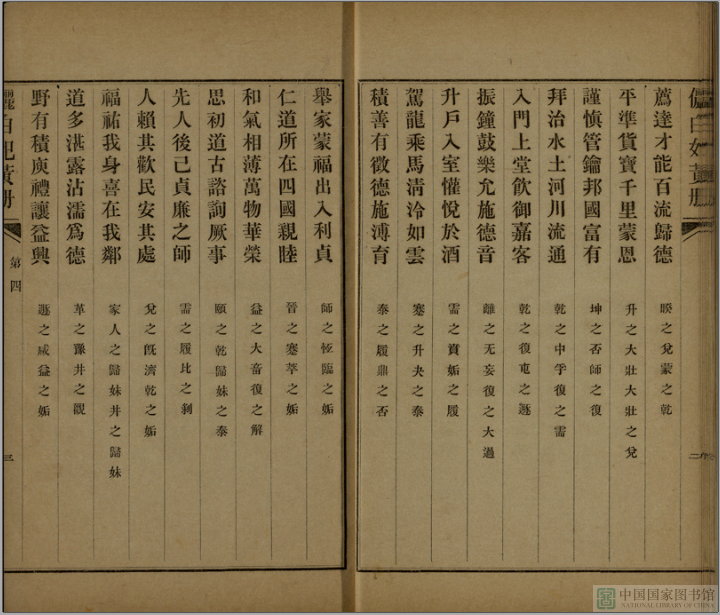 薦達才能百流歸德 睽之兌蒙之乾
平準貨寶千里蒙恩 升之大壯大壯之兌
謹慎管鑰邦國富有 坤之否師之復
拜治水土河川流通 乾之中孚復之需
入門上堂飲御嘉客 乾之復屯之遯
振鐘鼓樂允施德音 離之无妄復之大過
升戶入室懽悅於酒 需之賁姤之履
駕龍乘馬淸泠如雲 蹇之升夬之泰
積善有徵德施溥育 泰之履鼎之否
舉家蒙福出入利貞 師之恆臨之姤
仁道所在四國親睦 晉之蹇萃之姤
和氣相薄萬物華榮 益之大畜復之解
思初道古諮詢厥事 頤之乾歸妹之泰
先人後己貞廉之師 需之履比之剝
人賴其歡民安其處 兌之旣濟乾之姤
福祐我身喜在我鄰 家人之歸妹井之歸妹
道多湛露沾濡爲德 革之豫井之觀
野有積庾禮讓益興 遯之咸益之姤
儷白妃黃冊
第四
三
中国国家图书馆
NATIONAL LIBRARY OF CHINA